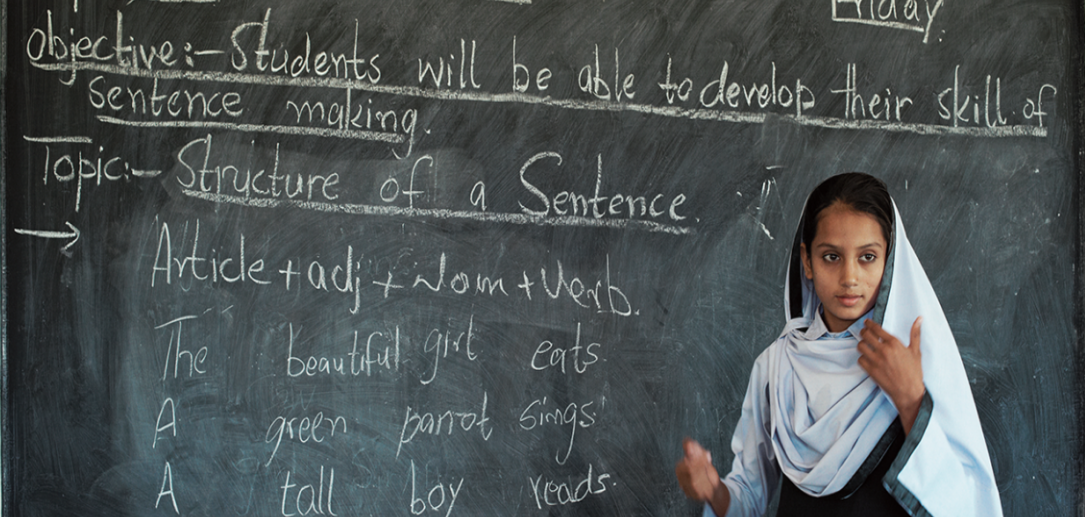 Friday
Objective:- Students will be able to develop their skill of
sentence making.
Topic:- Structure of a Sentence.
→ Article + adj + Noun + Verb.
The beautiful girl eats.
A green parrot sings.
A tall boy reads.